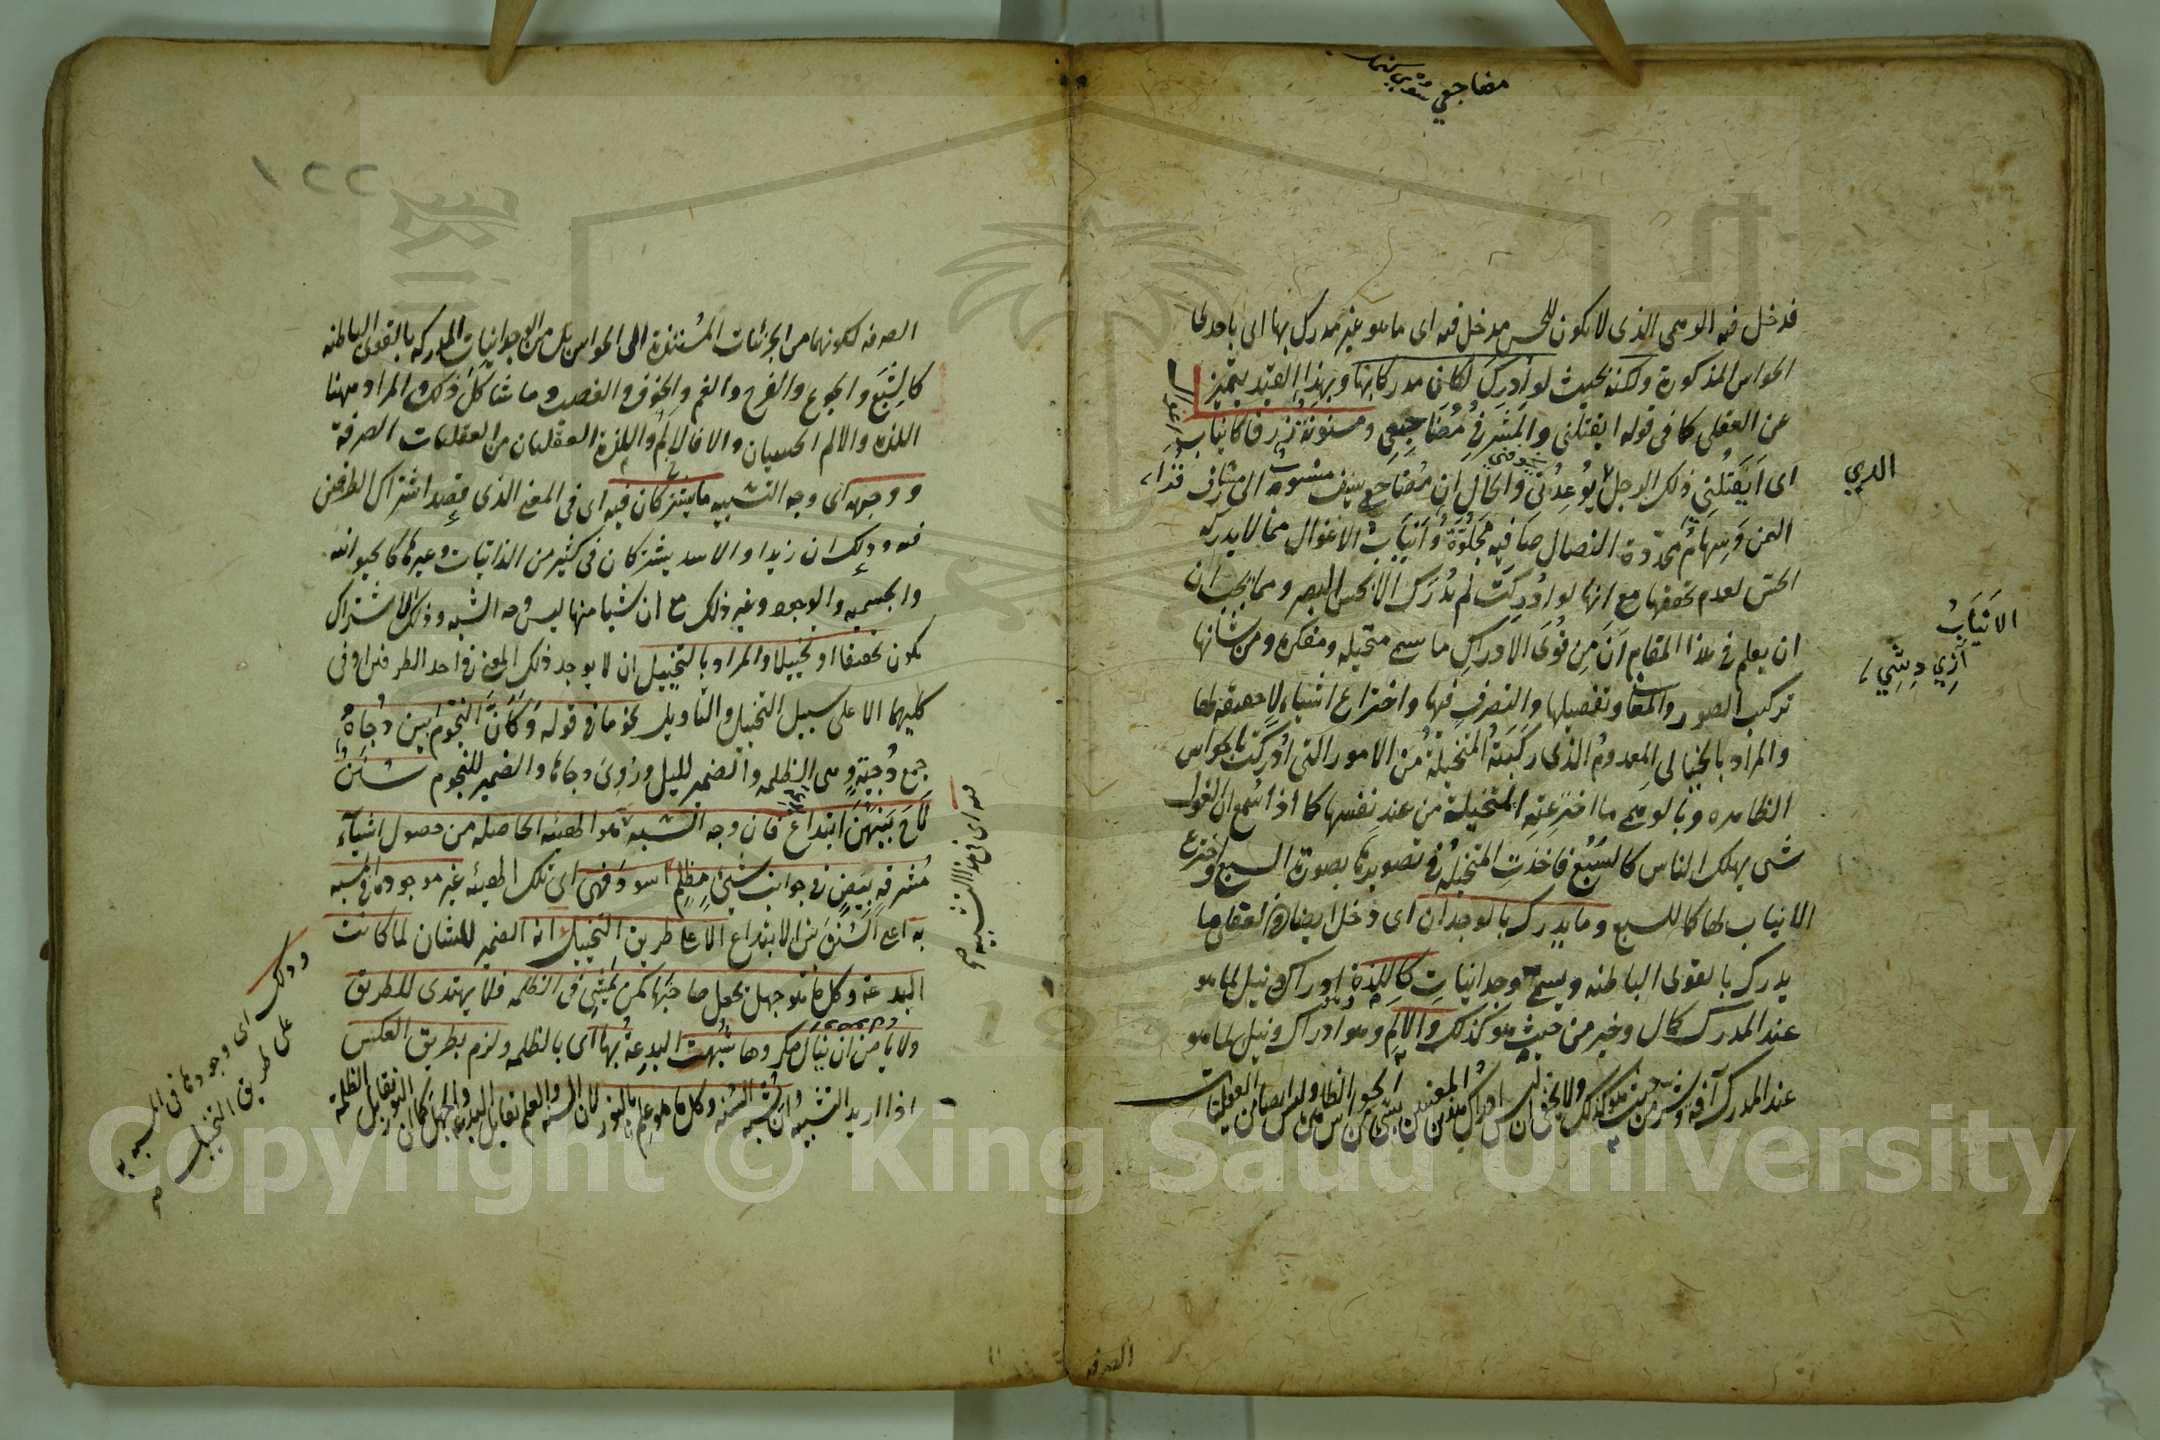 مضاجعي
فدخل فيه الوهمي الذي لا يكون للحس مدخل فيه اى ما هو غير مدرك بها اى باحدى
الحواس المذكورة ولكنه بحيث لو أدرك لكان مدركا بها وبهذا القيد يتميز
عن العقلى كما فى قوله ايقتلنى والمشرفى مضاجعي ومسنونة زرق كانياب
اغوال
اى أيقتلنى ذلك الرجل يوعدنى والحال ان مضاجعي سيف منسوب الى مشارف
اليمن وسهام محددة النصال صافيه مجلوة وأنياب الاغوال مما لا يدركه
الحس لعدم تحققها مع انها لو ادركت لم تدرك الا بحس البصر ومما يجب ان
ان يعلم فى هذا المقام أن من قوى الادراك ما يسمى متخيله ومفكره ومن شانها
تركيب الصور والمعانى وتفصيلها والتصرف فيها واختراع اشياء لا حقيقة لها
والمراد بالخيالى المعدوم الذى ركبته المتخيلة من الامور التى ادركت بالحواس
الظاهره وبالوهمي ما اخترعته المتخيلة من عند نفسها كما اذا سمع ان الغول
شى يهلك الناس كالسبع فاخذت المتخيلة فى تصويرها بصورة السبع واختراع
الانياب لها كما للسبع وما يدرك بالوجدان اى دخل ايضا فى العقلى ما
يدرك بالقوى الباطنه ويسمى وجدانيات كاللذة وهى ادراك ونيل لما هو
عند المدرك كمال وخير من حيث هو كذلك والالم وهو ادراك ونيل لما هو
عند المدرك آفة وشر من حيث هو كذلك ولا يخفى ان ادراك هذين المعنيين ليس بشئ من الحواس الظاهرة وليسا ايضا من العقليات
الانياب
الصرفه
١٢٢
الصرفه لكونهما من الجزئيات المستندة الى الحواس بل من الوجدانيات المدركه بالقوى الباطنه
كالشبع والجوع والفرح والغم والخوف والغضب وما شاكل ذلك والمراد ههنا
اللذه والالم الحسيان والا فالالم واللذة العقليان من العقليات الصرفة
ووجهه اى وجه التشبيه ما يشتركان فيه اى فى المعنى الذى قصد اشتراك الطرفين
فيه وذلك ان زيدا والاسد يشتركان فى كثير من الذاتيات وغيرها كالحيوانيه
والجسميه والوجود وغير ذلك مع ان شيا منها ليس وجه الشبه وذلك الاشتراك
يكون تحقيقا او تخييلا والمراد بالتخييل ان لا يوجد ذلك المعنى فى احد الطرفين او فى
كليهما الا على سبيل التخييل والتاويل نحو ما فى قوله وكأن النجوم بين دجاه
جمع دجية وهى الظلمه والضمير لليل وروى دجاها والضمير للنجوم سنن
لاح بينهن ابتداع فان وجه الشبه هو الهيئه الحاصله من حصول اشيآء
مشرقه بيض فى جوانب شئ مظلم اسود فهى اى تلك الهيئه غير موجوده فى المشبه
به اعنى السنن بين الابتداع الا على طريق التخييل انه الضمير للشان لما كانت
البدعة وكل ما هو جهل تجعل صاحبها كمن يمشى فى الظلمه فلا يهتدى للطريق
ولا يأمن ان ينال مكروها شبهت البدعة بها اى بالظلمه ولزم بطريق العكس
اذا اريد التشبيه ان تشبه السنه وكل ما هو علم بالنور لان السنه والعلم تقابل البدعه والجهل كما ان النور يقابل الظلمة
وذلك اى وجودها فى المشبه به
على طريق التخييل
Copyright © King Saud University